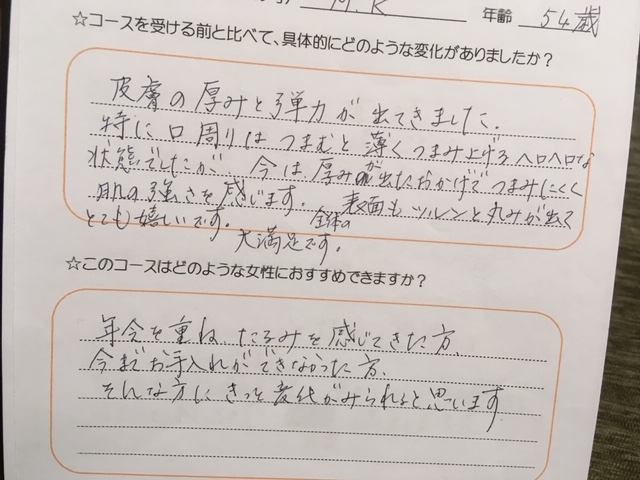 M.K 年齢 54歳
☆コースを受ける前と比べて、具体的にどのような変化がありましたか?
皮膚の厚みと弾力が出てきました。
特に口周りはつまむと薄くつまみ上げるヘロヘロな
状態でしたが 今は厚みが出たおかげでつまみにくく
肌の強さを感じます。 表面もツルンと丸みが出て
とても嬉しいです。 全体の
大満足です。
☆このコースはどのような女性におすすめできますか?
年令を重ね たるみを感じてきた方、
今までお手入れができなかった方、
そんな方に きっと変化がみられると思います